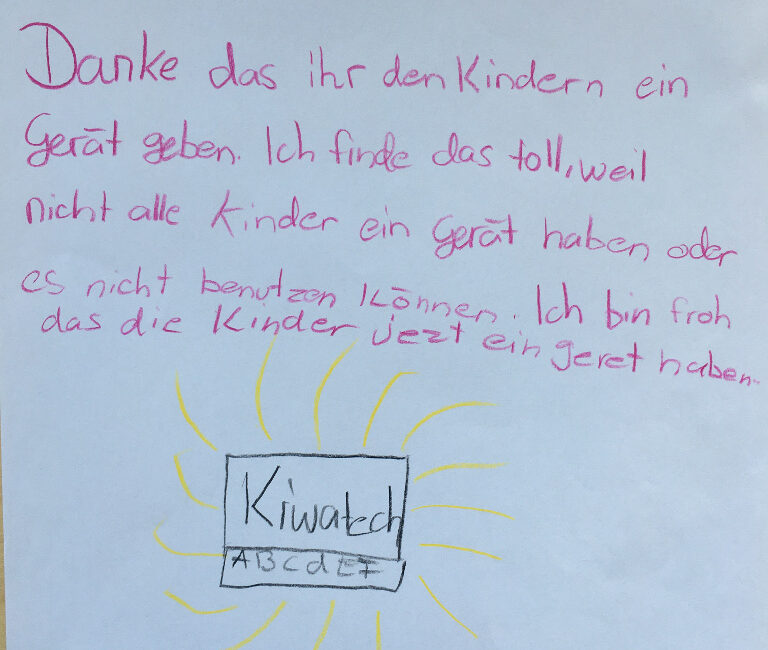 Danke das ihr den Kindern ein
Gerät geben. Ich finde das toll, weil
nicht alle Kinder ein Gerät haben oder
es nicht benutzen können. Ich bin froh
das die Kinder jezt ein geret haben.
Kiwatech
ABCdEF